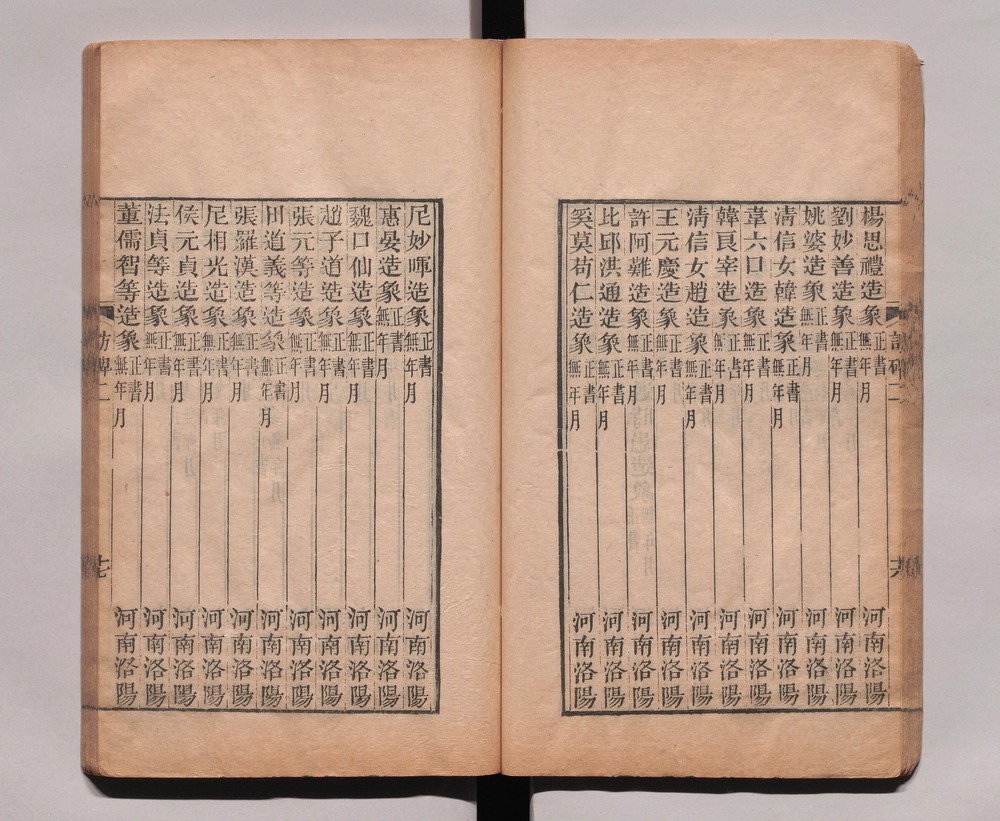 楊思禮造象正書無年月 河南洛陽
劉妙善造象正書無年月 河南洛陽
姚婆造象正書無年月 河南洛陽
清信女韓造象正書無年月 河南洛陽
韋六口造象正書無年月 河南洛陽
韓良宰造象正書無年月 河南洛陽
清信女趙造象正書無年月 河南洛陽
王元慶造象正書無年月 河南洛陽
許阿難造象正書無年月 河南洛陽
比邱洪通造象正書無年月 河南洛陽
奚莫苟仁造象正書無年月 河南洛陽
尼妙暉造象正書無年月 河南洛陽
惠晏造象正書無年月 河南洛陽
魏口仙造象正書無年月 河南洛陽
趙子道造象正書無年月 河南洛陽
張元等造象正書無年月 河南洛陽
田道義等造象正書無年月 河南洛陽
張羅漢造象正書無年月 河南洛陽
尼相光造象正書無年月 河南洛陽
侯元貞造象正書無年月 河南洛陽
法貞等造象正書無年月 河南洛陽
董儒智等造象正書無年月 河南洛陽